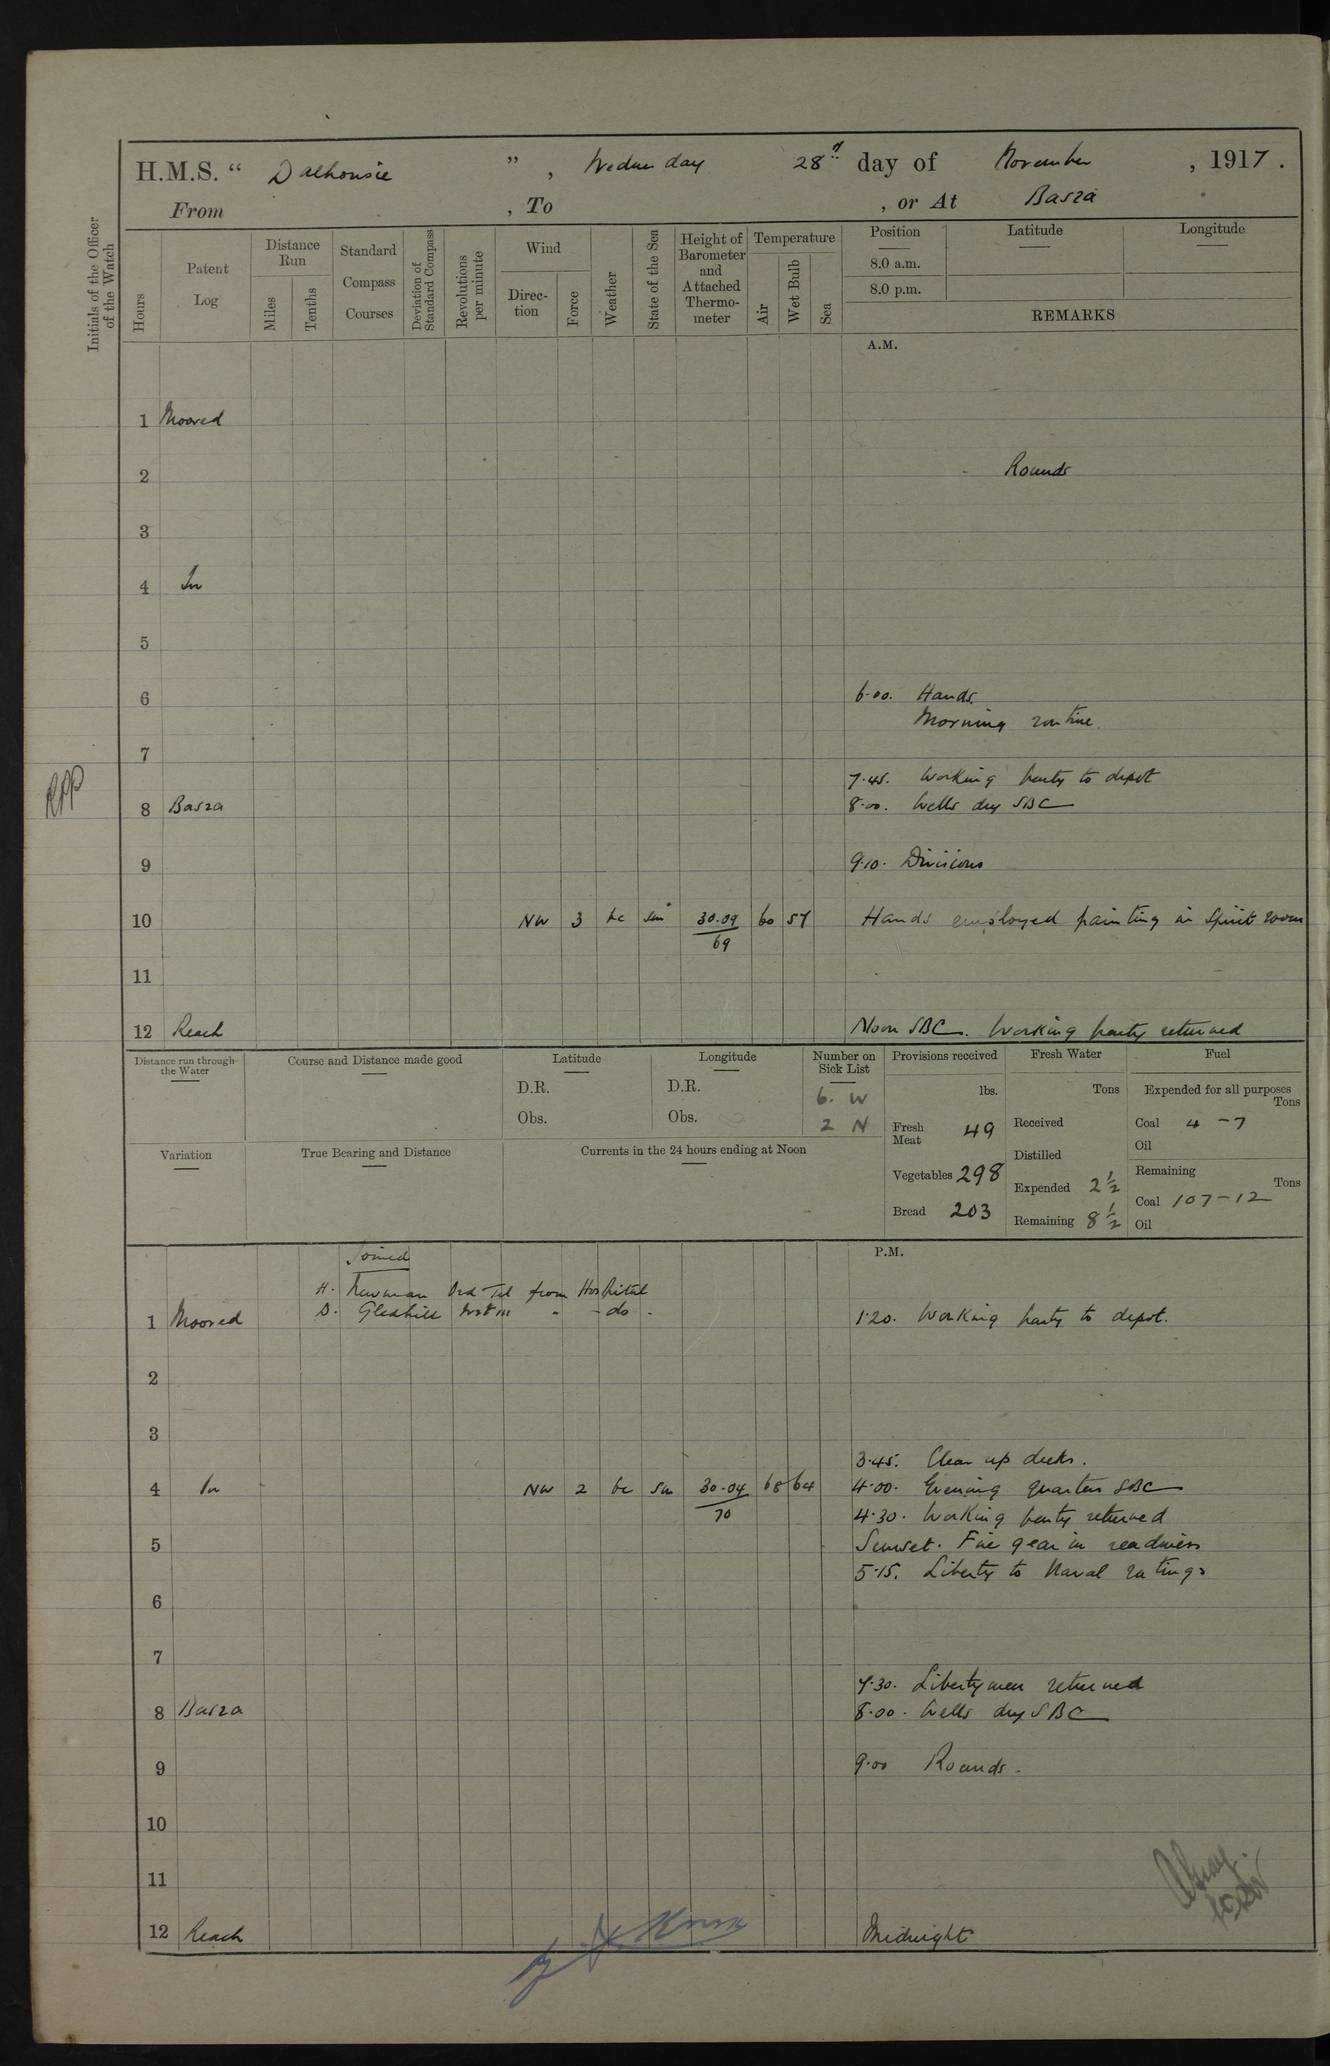 H.M.S. " Dalhousie ", Wednesday 28th day of November, 1917.
From , To , or At Basra
Initials of the Officer of the Watch
Hours
Patent Log
Distance Run
Miles
Tenths
Standard Compass Courses
Deviation of Standard Compass
Revolutions per minute
Wind
Direction
Force
Weather
State of the Sea
Height of Barometer and Attached Thermometer
Temperature
Air
Wet Bulb
Sea
Position
8.0 a.m.
8.0 p.m.
Latitude
Longitude
REMARKS
A.M.
1 Moored
2 Rounds
3
4 In
5
6 6.00. Hands.
Morning routine.
7
7.45. Working party to depot
RPP
8 Basra 8.00. Wells dry SBC
9 9.10. Divisions
10 NW 3 bc sm 30.09 60 57 Hands employed painting in Spirit room
69
11
12 Reach Noon SBC. Working party returned
Distance run through the Water
Course and Distance made good
Latitude
D.R.
Obs.
Longitude
D.R.
Obs.
Number on Sick List
6. W
2 N
Provisions received
lbs.
Fresh Meat 49
Vegetables 298
Bread 203
Fresh Water
Tons
Received
Distilled
Expended 2 1/2
Remaining 8 1/2
Fuel
Expended for all purposes
Tons
Coal 4-7
Oil
Remaining
Tons
Coal 107-12
Oil
Variation
True Bearing and Distance
Currents in the 24 hours ending at Noon
P.M.
Joined
H. Newman Ord Tel from Hospital
D. Gledhill " -do-
1 Moored 1.20. Working party to depot.
2
3
3.45. Clear up decks.
4 In NW 2 bc sm 30.04 68 64 4.00. Evening quarters SBC
70
4.30. Working party returned
5 Sunset. Fire gear in readiness
5.15. Liberty to Naval ratings
6
7
7.30. Libertymen returned
8 Basra 8.00. Wells dry SBC
9 9.00 Rounds.
10
11
12 Reach Midnight